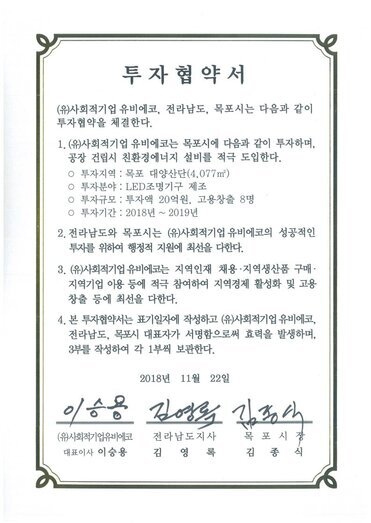 투자협약서
(유)사회적기업 유비에코, 전라남도, 목포시는 다음과 같이
투자협약을 체결한다.
1. (유)사회적기업 유비에코는 목포시에 다음과 같이 투자하며,
공장 건립시 친환경에너지 설비를 적극 도입한다.
○ 투자지역 : 목포 대양산단(4,077㎡)
○ 투자분야 : LED조명기구 제조
○ 투자규모 : 투자액 20억원, 고용창출 8명
○ 투자기간 : 2018년 ~ 2019년
2. 전라남도와 목포시는 (유)사회적기업 유비에코의 성공적인
투자를 위하여 행정적 지원에 최선을 다한다.
3. (유)사회적기업 유비에코는 지역인재 채용·지역생산품 구매·
지역기업 이용 등에 적극 참여하여 지역경제 활성화 및 고용
창출 등에 최선을 다한다.
4. 본 투자협약서는 표기일자에 작성하고 (유)사회적기업 유비에코,
전라남도, 목포시 대표자가 서명함으로써 효력을 발생하며,
3부를 작성하여 각 1부씩 보관한다.
2018년 11월 22일
이승용 김영록 김종식
(유)사회적기업유비에코 전라남도지사 목포시장
대표이사 이승용 김영록 김종식